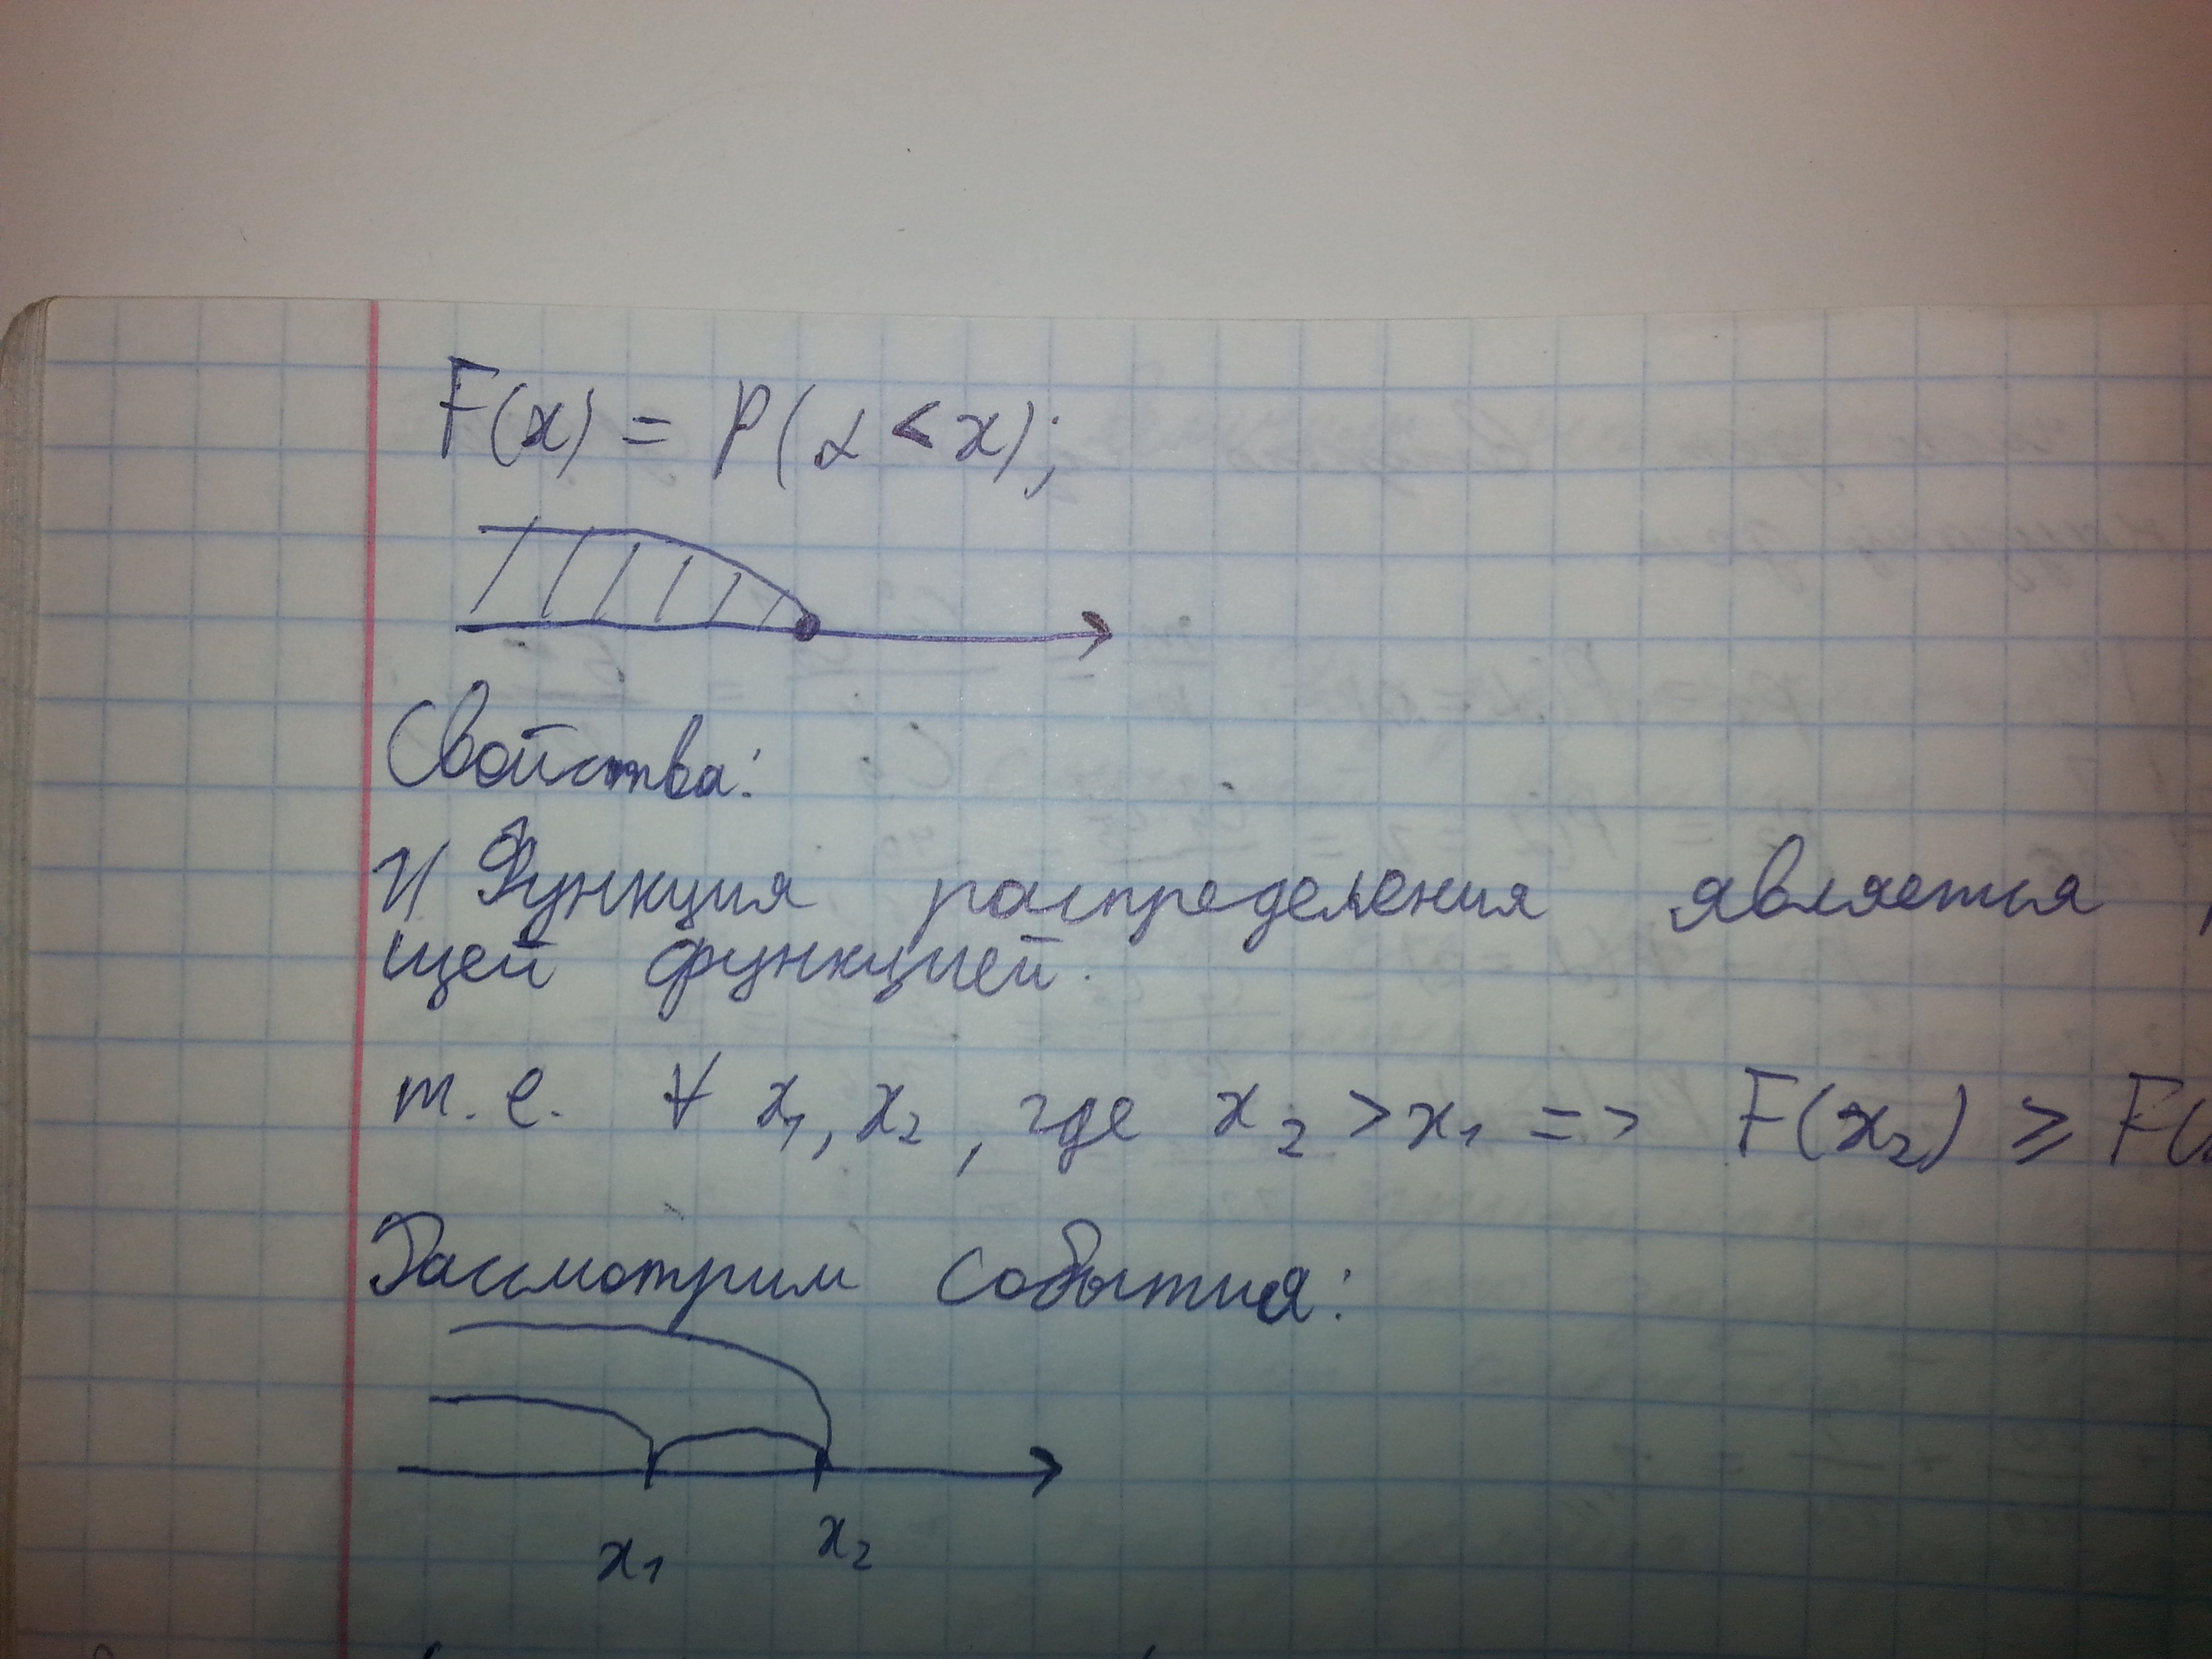 F(x) = P(α < x);
Свойства:
1) Функция распределения является
щей функцией.
т.е. ∀ x₁, x₂, где x₂ > x₁ => F(x₂) ≥ F(
Рассмотрим события:
x₁ x₂